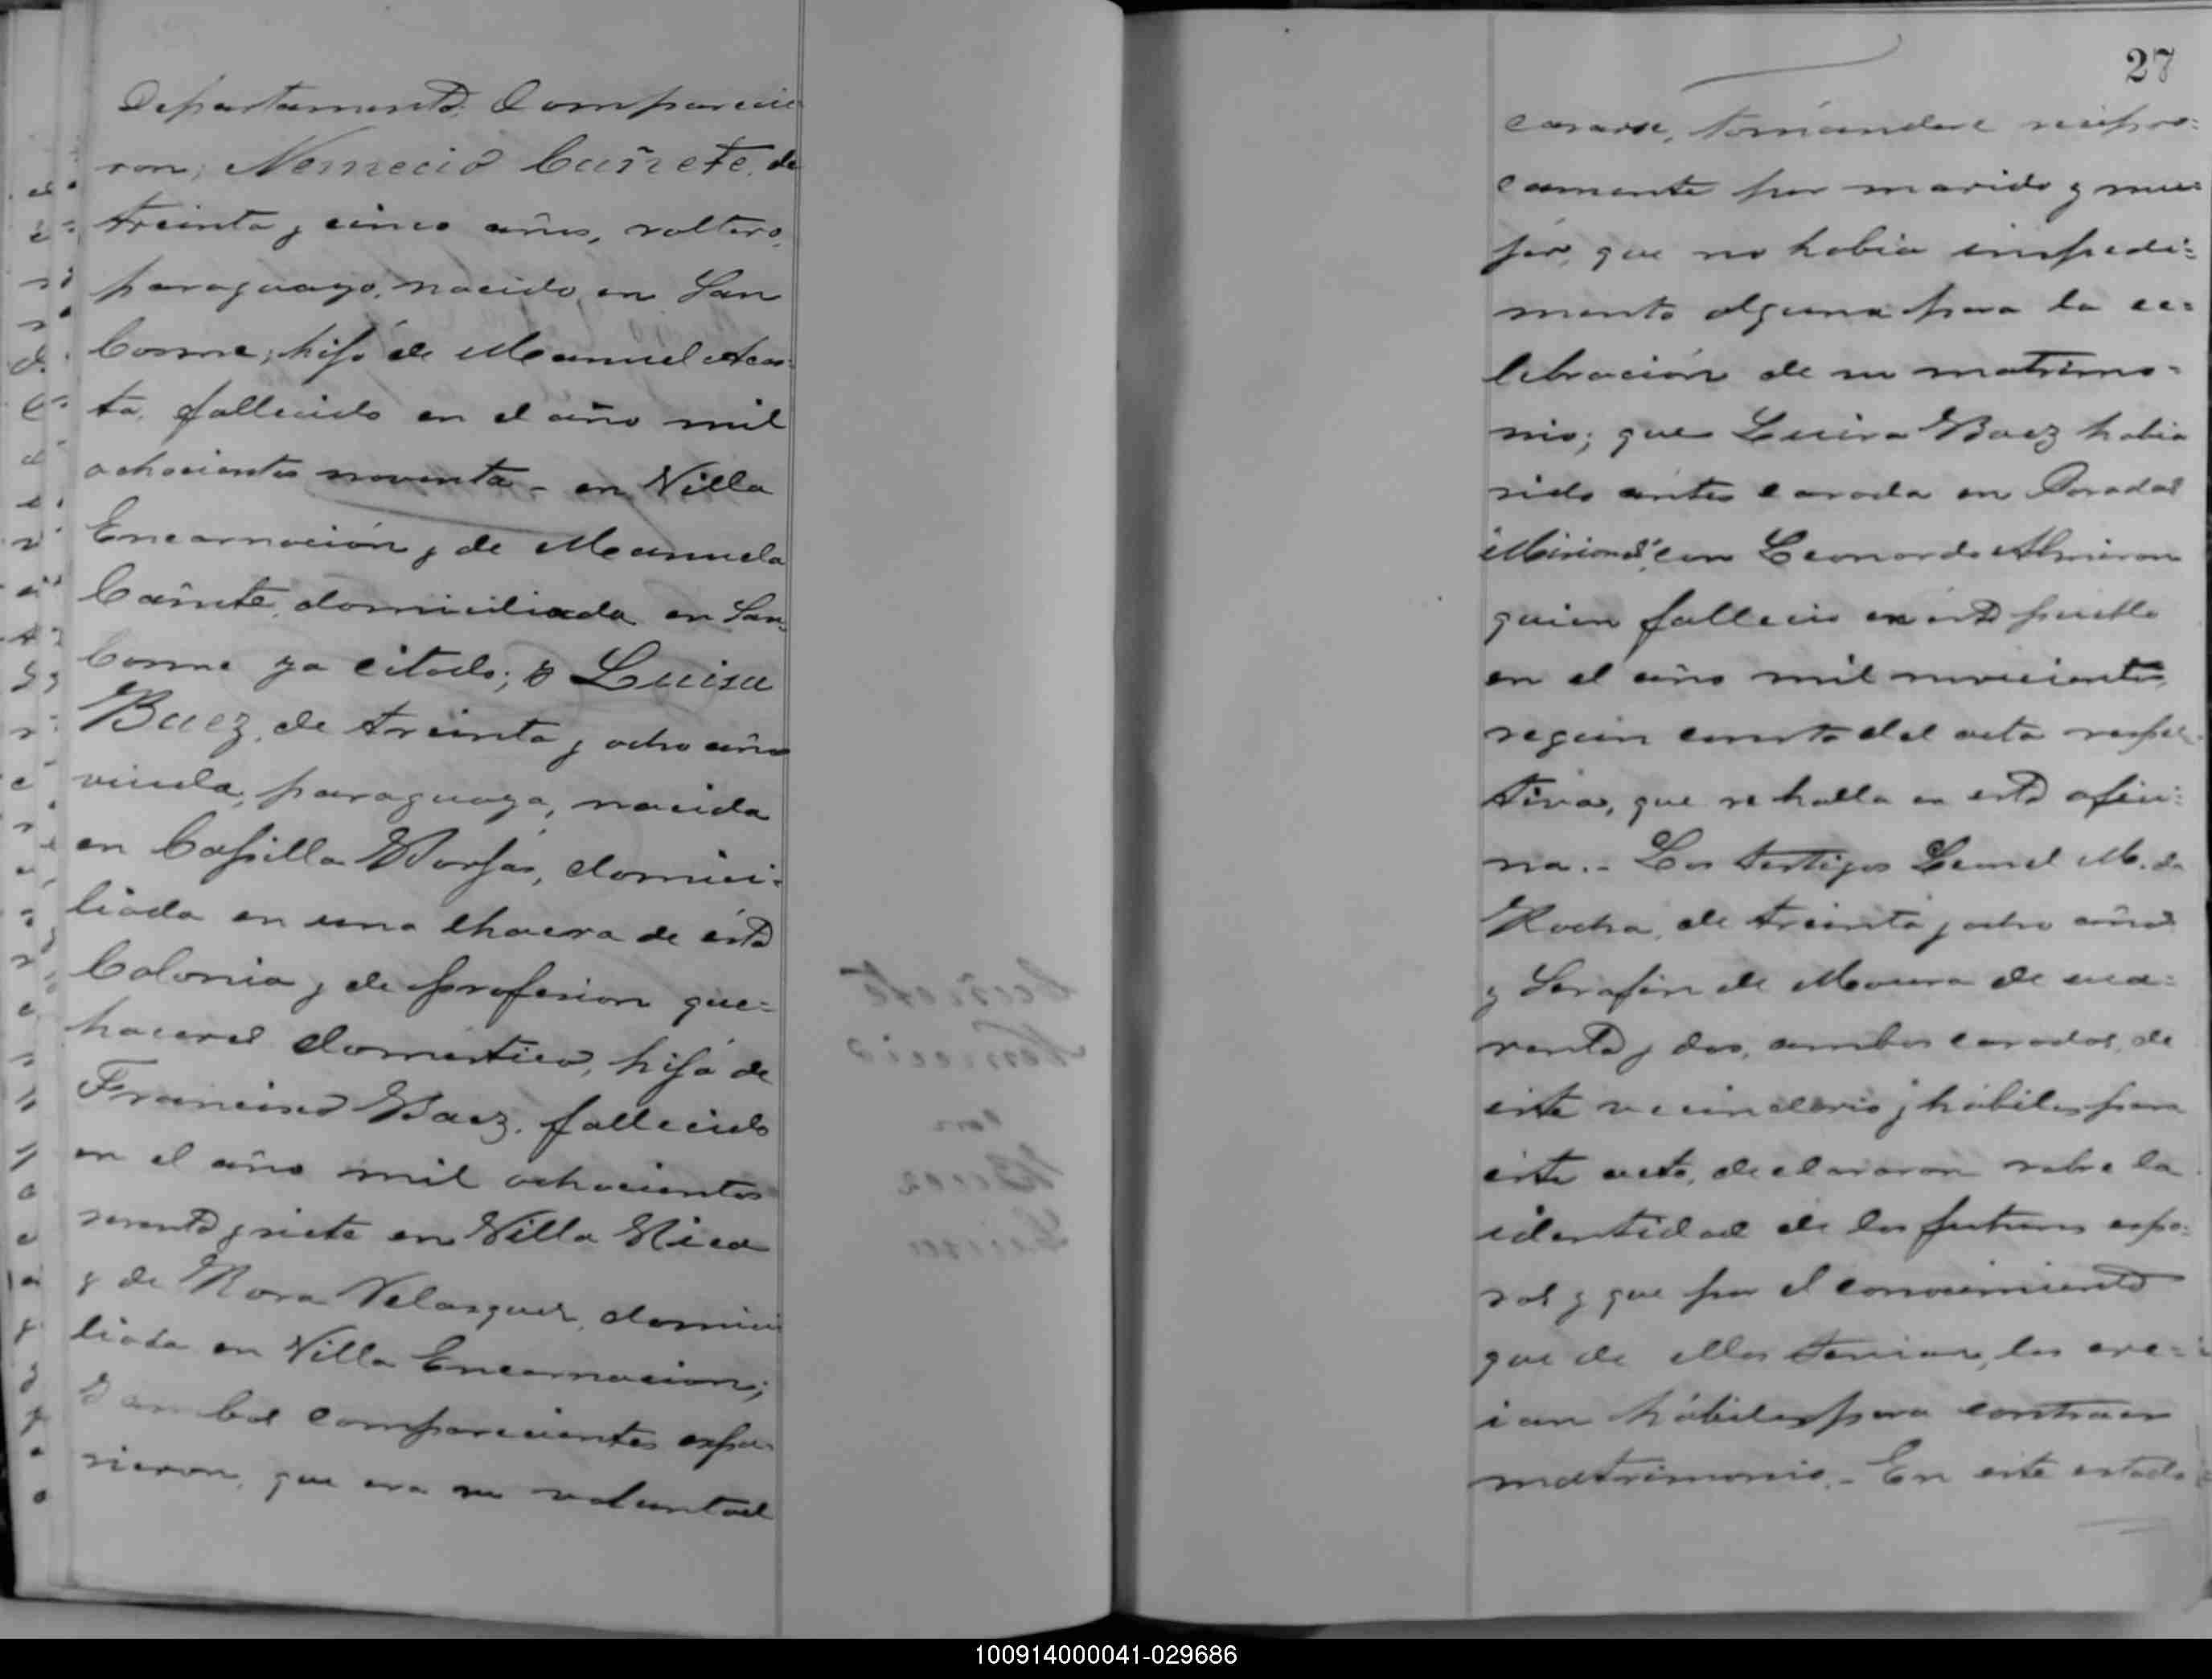 Departamento: Comparecie
ron; Nemecio Cañete, de
treinta y cinco años, soltero,
paraguayo, nacido en San
Cosme; hijo de Manuel Acos-
ta, fallecido en el año mil
ochocientos noventa - en Villa
Encarnación y de Manuela
Cañete, domiciliada en San
Cosme ya citado; y Luisa
Baez, de treinta y ocho años
viuda, paraguaya, nacida
en Capilla Borjas, domici-
liada en una chacra de ésta
Colonia y de profesion que=
haceres domestico, hija de
Francisco Baez, fallecido
en el año mil ochocientos
y siete en Villa Rica
y de Rosa Velasquez, domici
liada en Villa Encarnacion;
y ambos comparecientes expu-
sieron, que era su voluntad
27
casarse, tomandose recipro=
camente por marido y mu=
jer, que no habia impedi=
mento alguna para la ce=
lebración de su matrimo=
nio; que Luisa Baez habia
sido antes casada en Posadas
"Misiones", con Leonardo Almiron
quien fallecio en esta pueblo
en el año mil novecientos,
segun consta del acta respec-
tiva, que se halla en esta ofici=
na.- Los testigos Leonel M. da
Rocha, de treinta y ocho años
y Serafin de Moura de cua=
renta y dos, ambos casados, de
este vecindario y hábiles para
este acto, declararon sobre la
identidad de los futuros espo=
sos y que por el conocimiento
que de ellos tenian, los cre=
ian hábiles para contraer
matrimonio.- En este estado
100914000041-029686